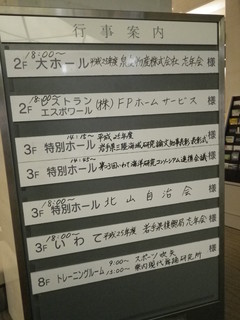 行事案内
18:00〜
2F 大ホール 平成25年度 産株式会社 忘年会 様
18:00〜
2F レストラン エスポワール (株)FPホームサービス 様
14:15〜 平成25年度
3F 特別ホール 岩手県三陸海域研究論文知事表彰表彰式 様
14:45〜
3F 特別ホール 第3回いわて海洋研究コンソーシアム連携会議 様
18:00〜
3F 特別ホール 北山自治会 様
18:00〜
3F いわて 平成25年度 岩手県復興局忘年会 様
9:00〜 スポーツ吹矢
8F トレーニングルーム 13:00〜 県内現代舞踊研究所 様